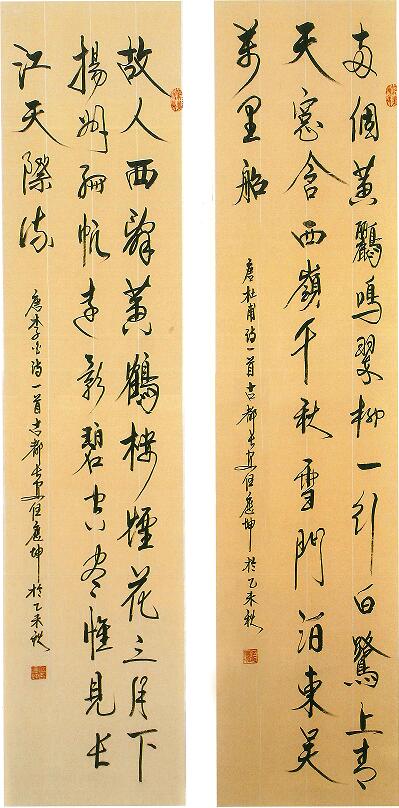 两個黄鸝鳴翠柳一行白鷺上青
天窓含西嶺千秋雪門泊東吴
萬里船
唐杜甫诗一首古都长安任應坤於乙未秋
故人西辭黄鶴楼煙花三月下
揚州孤帆遠影碧空尽惟見长
江天際流
唐李白诗一首古都长安任應坤於乙未秋